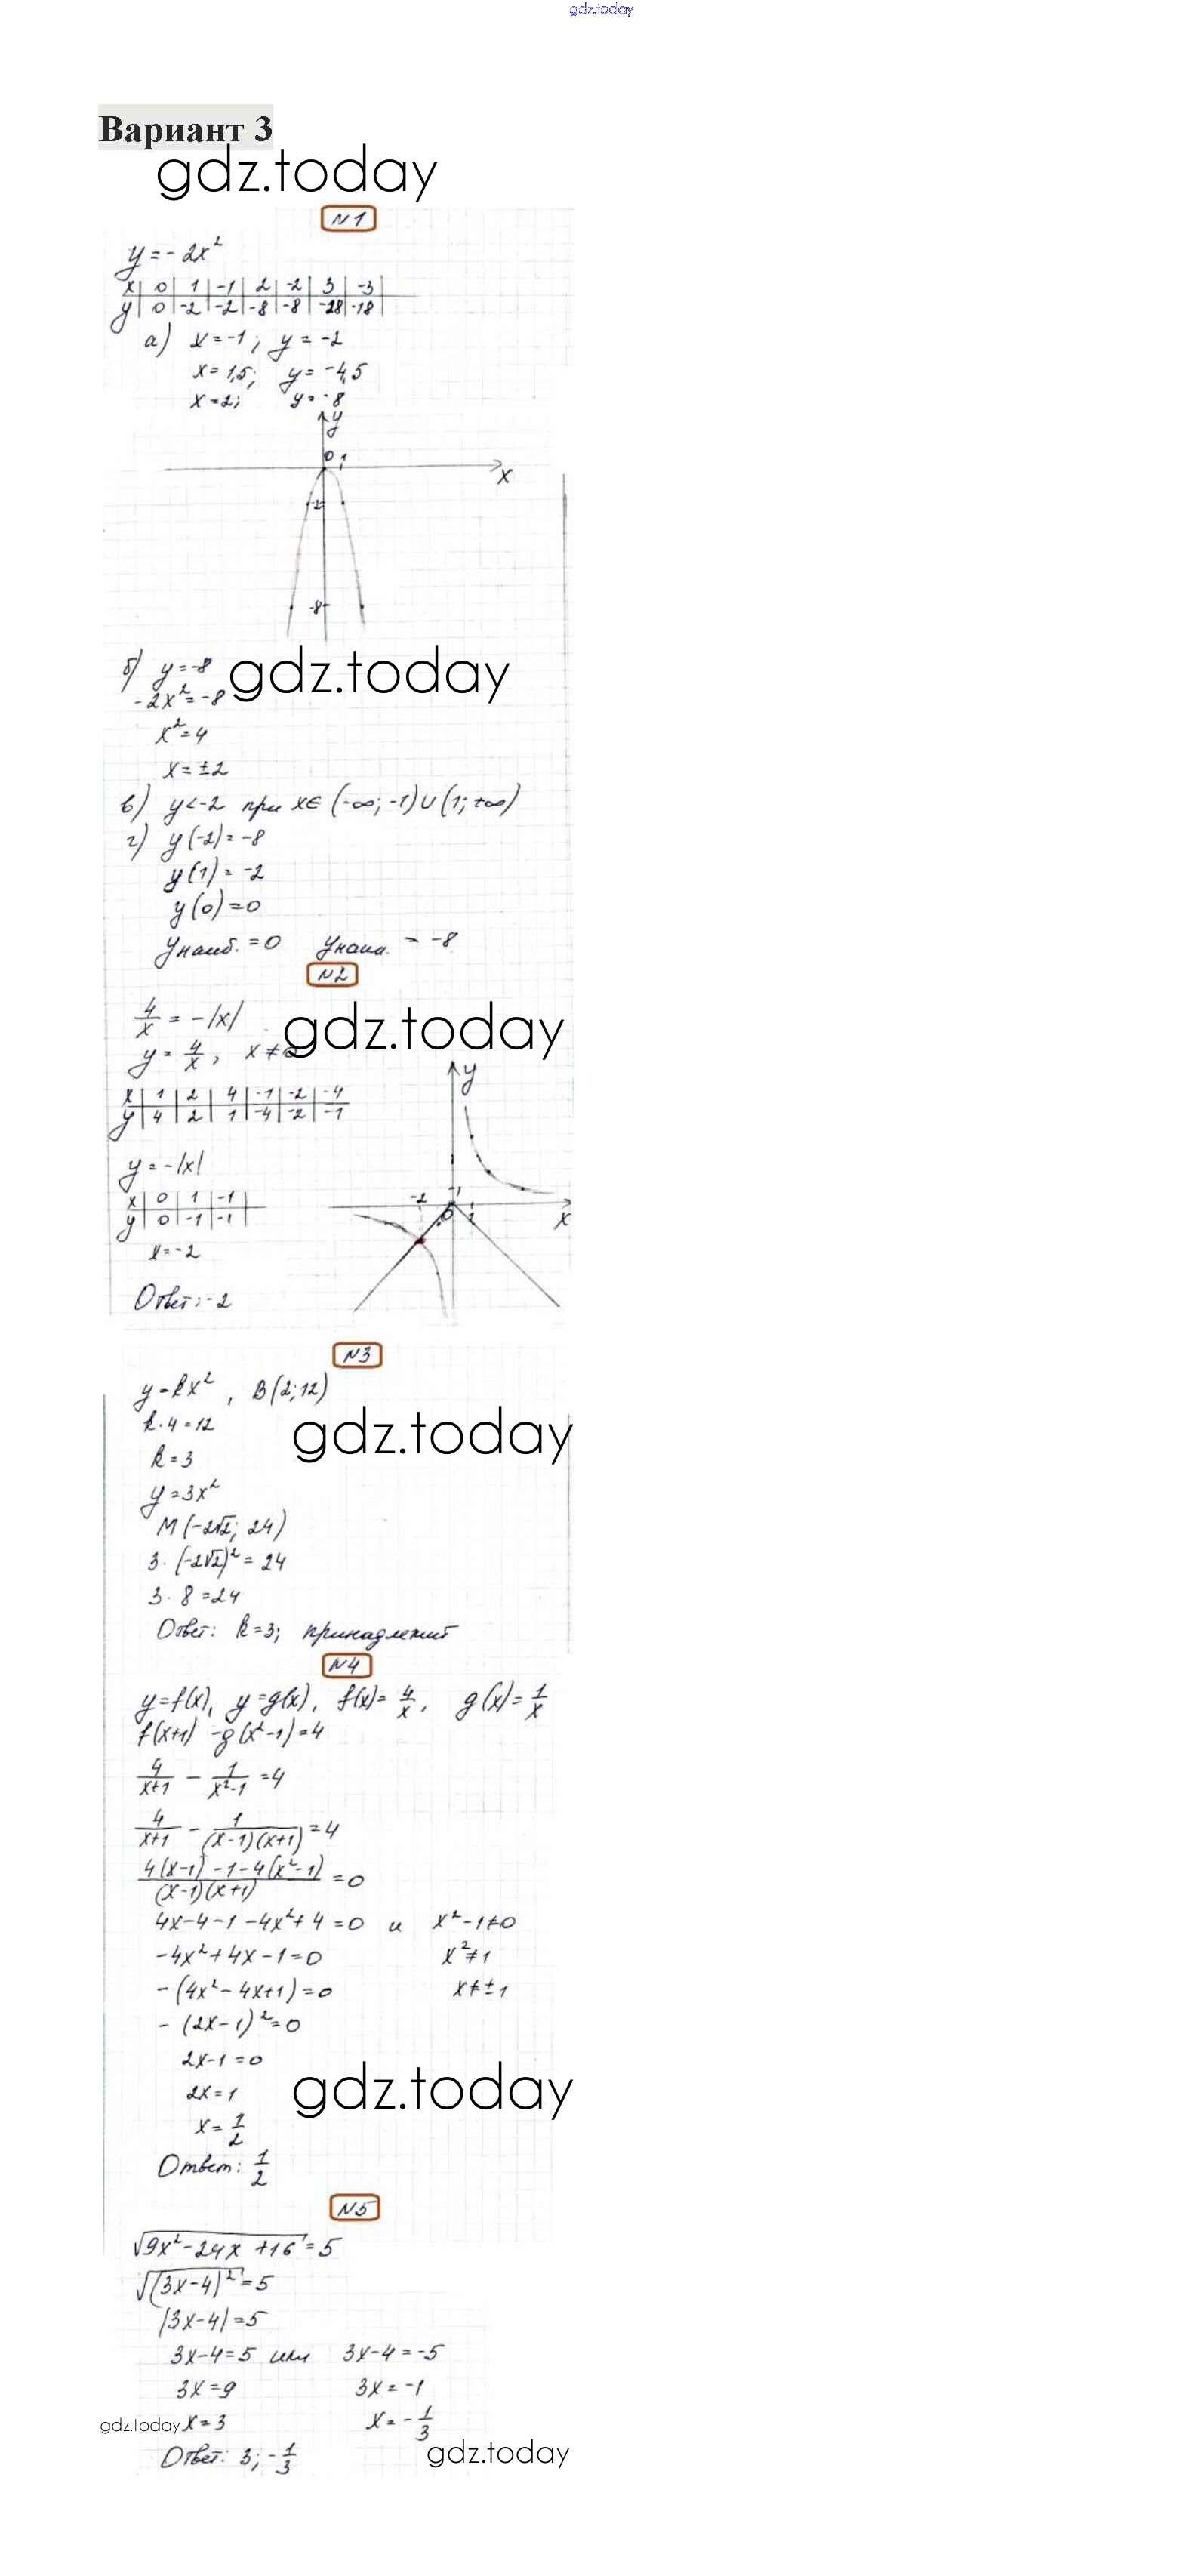 gdz.today
Вариант 3
gdz.today
N1
y = - 2x²
x | 0 | 1 | -1 | 2 | -2 | 3 | -3 |
y | 0 | -2 | -2 | -8 | -8 | -28 | -18 |
а) x = -1 ; y = -2
x = 1,5; y = -4,5
x = 2; y = -8
y
0 1
x
-2
-8
б) y = -8
gdz.today
-2x² = -8
x² = 4
x = ±2
в) y < -2 при x ∈ (-∞; -1) ∪ (1; +∞)
г) y(-2) = -8
y(1) = -2
y(0) = 0
yнаиб. = 0 yнаим. = -8
N2
4/x = - |x|
gdz.today
y = 4/x , x ≠ 0
x | 1 | 2 | 4 | -1 | -2 | -4
y | 4 | 2 | 1 | -4 | -2 | -1
y
y = - |x|
x | 0 | 1 | -1 |
y | 0 | -1 | -1 |
-2 1 0 1 x
x = -2
Ответ: -2
N3
y = kx² , B(2; 12)
k · 4 = 12
gdz.today
k = 3
y = 3x²
M (-2√2; 24)
3 · (-2√2)² = 24
3 · 8 = 24
Ответ: k = 3; принадлежит
N4
y = f(x), y = g(x), f(x) = 4/x , g(x) = 1/x
f(x+1) - g(x² - 1) = 4
4/(x+1) - 1/(x²-1) = 4
4/(x+1) - 1/((x-1)(x+1)) = 4
(4(x-1) - 1 - 4(x²-1))/((x-1)(x+1)) = 0
4x - 4 - 1 - 4x² + 4 = 0 и x² - 1 ≠ 0
-4x² + 4x - 1 = 0 x² ≠ 1
- (4x² - 4x + 1) = 0 x ≠ ± 1
- (2x - 1)² = 0
2x - 1 = 0
2x = 1
gdz.today
x = 1/2
Ответ: 1/2
N5
√(9x² - 24x + 16) = 5
√((3x-4)²) = 5
|3x-4| = 5
3x-4 = 5 или 3x-4 = -5
3x = 9 3x = -1
gdz.today x = 3 x = - 1/3
Ответ: 3; - 1/3
gdz.today